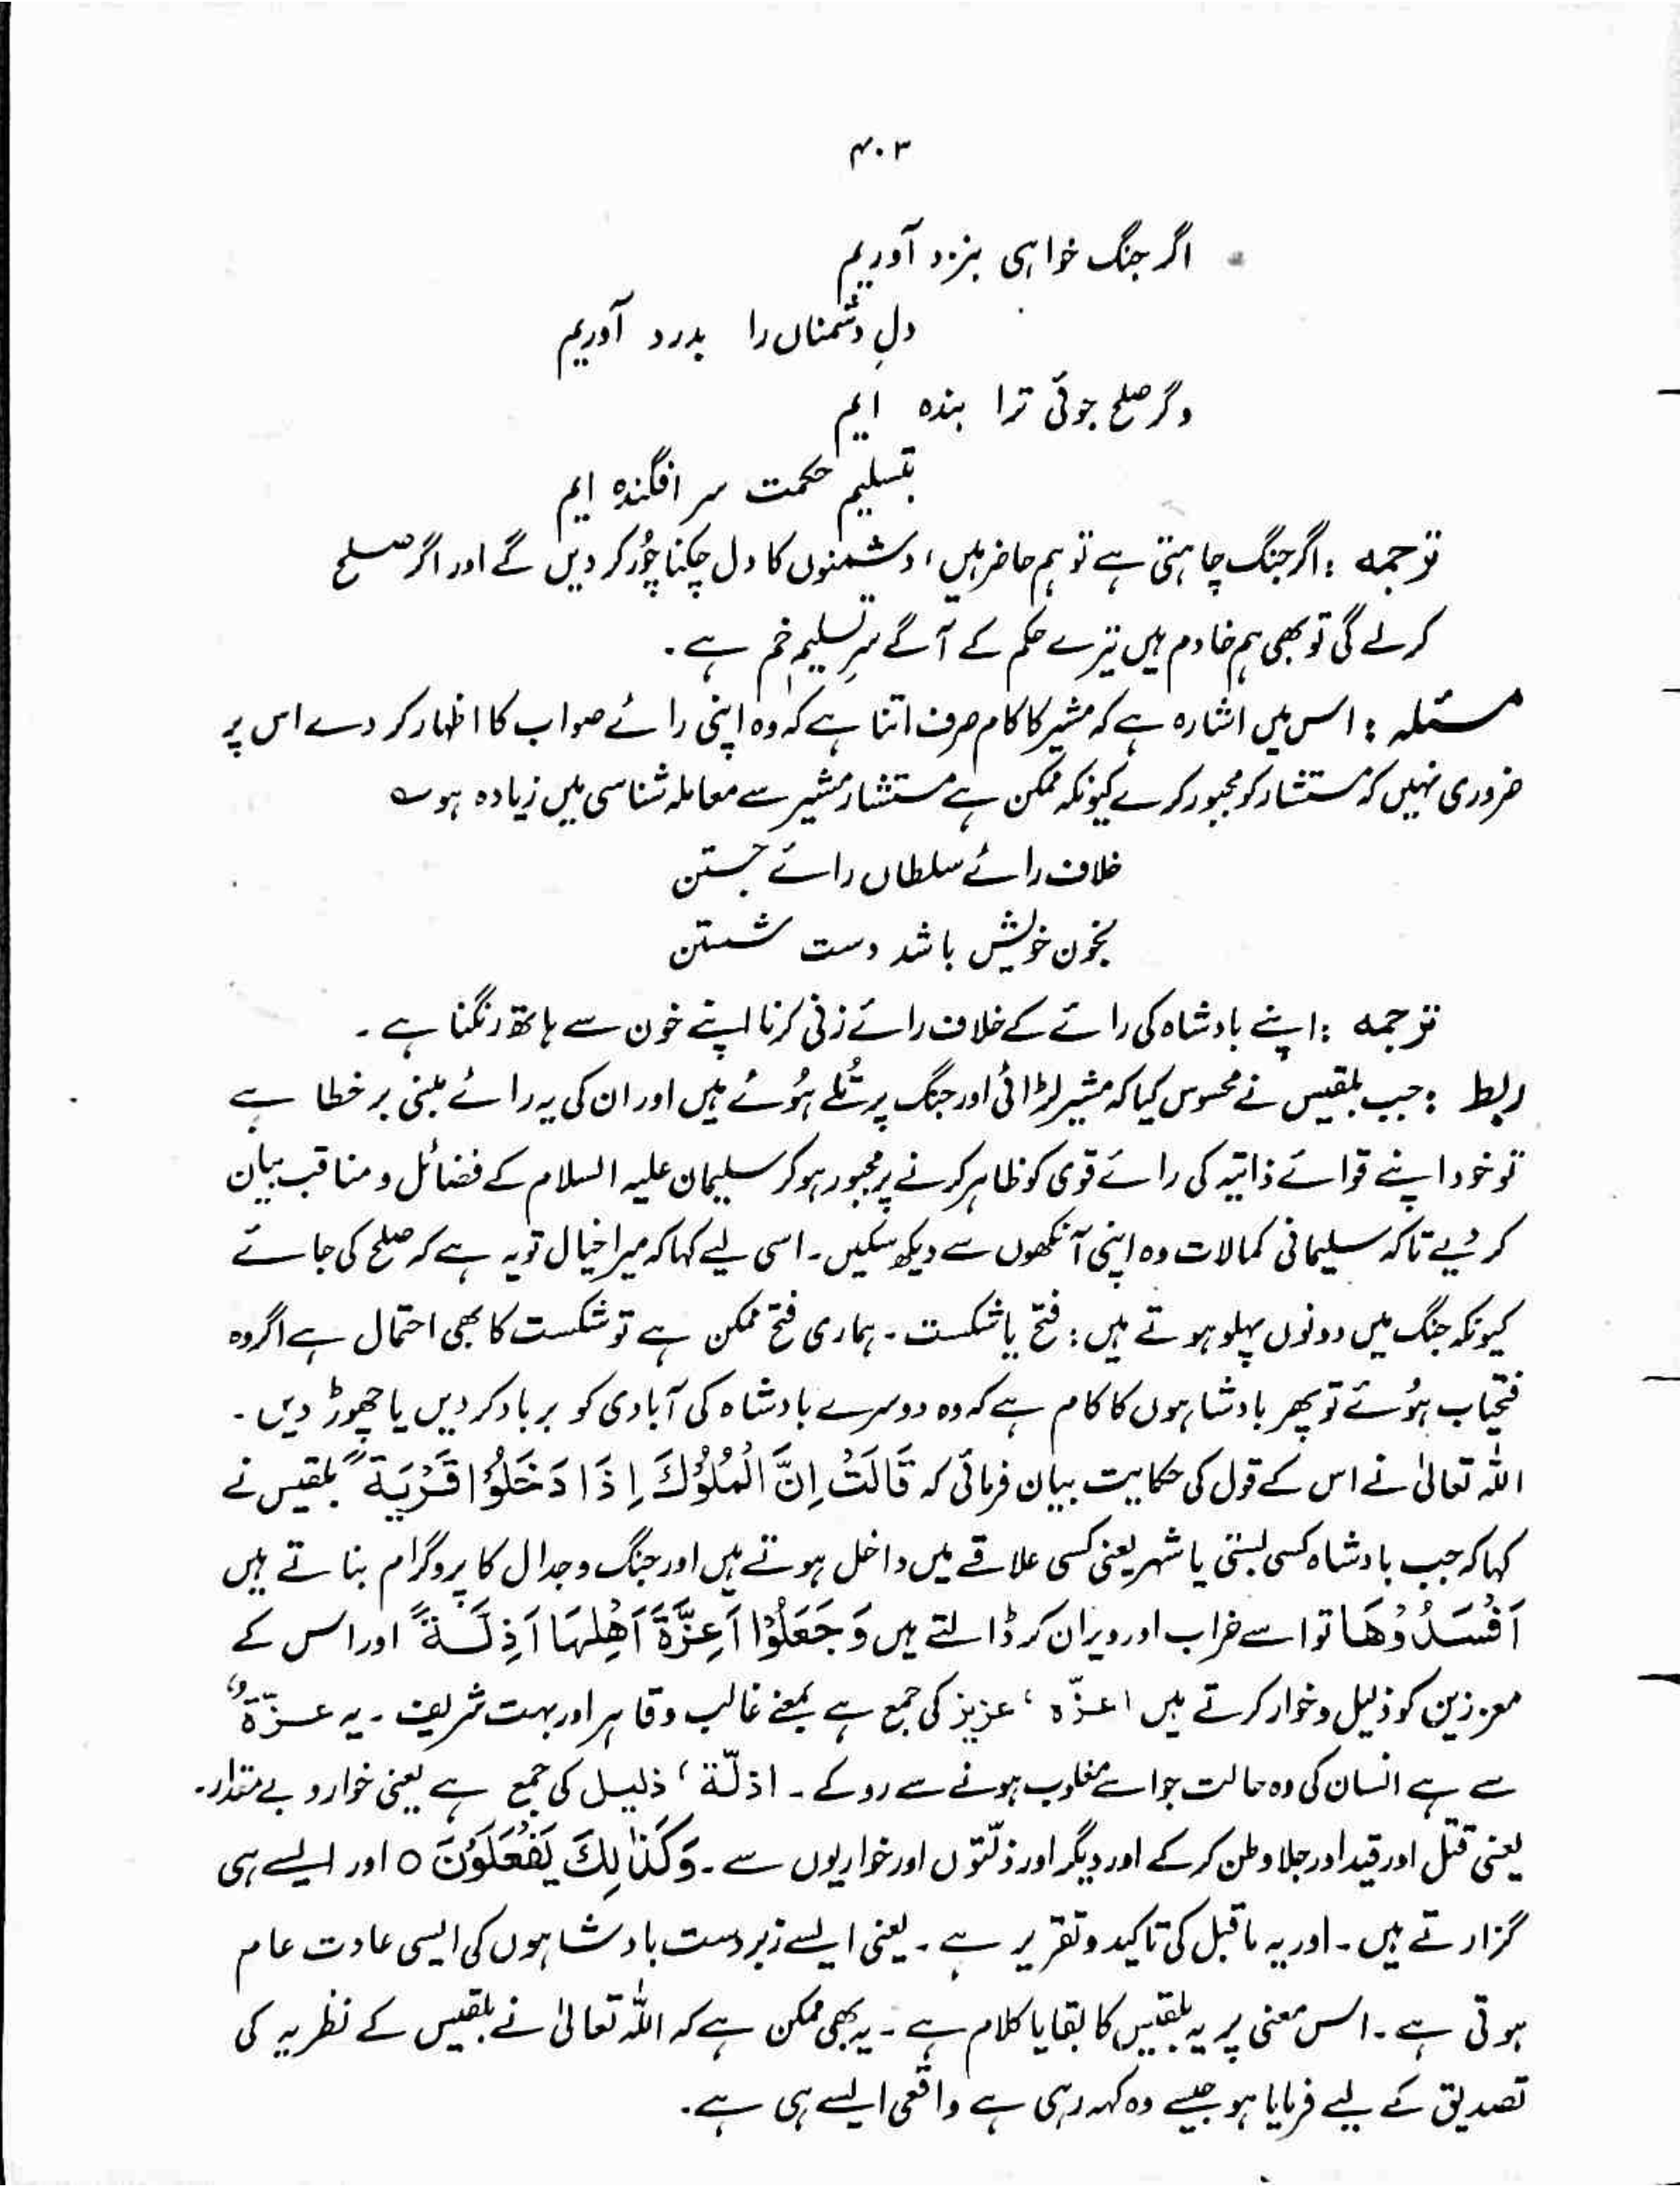 ۴۰۳
اگر جنگ خواہی بنزد آوریم
دلِ دشمناں را بدرد آوریم
وگر صلح جوئی ترا بندہ ایم
بتسلیم حکمت سر افگندہ ایم
ترجمہ : اگر جنگ چاہتی ہے تو ہم حاضر ہیں ، دشمنوں کا دل چکنا چُور کر دیں گے اور اگر صلح
کرلے گی تو بھی ہم خادم ہیں تیرے حکم کے آگے سرِ تسلیم خم ہے ۔
مسئلہ : اس میں اشارہ ہے کہ مشیر کا کام صرف اتنا ہے کہ وہ اپنی رائے صواب کا اظہار کر دے اس پر
ضروری نہیں کہ مستشار کو مجبور کرے کیونکہ ممکن ہے مستشار مشیر سے معاملہ شناسی میں زیادہ ہو ؎
خلاف رائے سلطاں رائے جستن
بخون خویش باشد دست شستن
ترجمہ : اپنے بادشاہ کی رائے کے خلاف رائے زنی کرنا اپنے خون سے ہاتھ رنگنا ہے ۔
ربط : جب بلقیس نے محسوس کیا کہ مشیر لڑائی اور جنگ پر تُلے ہُوئے ہیں اور ان کی یہ رائے مبنی بر خطا ہے
تو خود اپنے قوائے ذاتیہ کی رائے قوی کو ظاہر کرنے پر مجبور ہو کر سلیمان علیہ السلام کے فضائل و مناقب بیان
کر دیے تاکہ سلیمانی کمالات وہ اپنی آنکھوں سے دیکھ سکیں ۔ اسی لیے کہا کہ میرا خیال تو یہ ہے کہ صلح کی جائے
کیونکہ جنگ میں دونوں پہلو ہوتے ہیں : فتح یا شکست ۔ ہماری فتح ممکن ہے تو شکست کا بھی احتمال ہے اگر وہ
فتحیاب ہُوئے تو پھر بادشاہوں کا کام ہے کہ وہ دوسرے بادشاہ کی آبادی کو برباد کر دیں یا چھوڑ دیں ۔
اللہ تعالیٰ نے اس کے قول کی حکایت بیان فرمائی کہ قَالَتْ اِنَّ الْمُلُوْكَ اِذَا دَخَلُوْا قَرْیَةً بلقیس نے
کہا کہ جب بادشاہ کسی بستی یا شہر یعنی کسی علاقے میں داخل ہوتے ہیں اور جنگ و جدال کا پروگرام بناتے ہیں
اَفْسَدُوْهَا تو اسے خراب اور ویران کر ڈالتے ہیں وَجَعَلُوْا اَعِزَّةَ اَهْلِهَا اَذِلَّةً اور اس کے
معززین کو ذلیل و خوار کرتے ہیں اعزّہ ، عزیز کی جمع ہے بمعنے غالب و قاہر اور بہت شریف ۔ یہ عزّۃٌ
سے ہے انسان کی وہ حالت جو اسے مغلوب ہونے سے روکے ۔ اذلّة ، ذلیل کی جمع ہے یعنی خوار و بے مقدار ۔
یعنی قتل اور قید اور جلا وطن کر کے اور دیگر اور ذلّتوں اور خواریوں سے ۔ وَكَذٰلِكَ یَفْعَلُوْنَ ○ اور ایسے ہی
گزارتے ہیں ۔ اور یہ ماقبل کی تاکید و تقریر ہے ۔ یعنی ایسے زبردست بادشاہوں کی ایسی عادت عام
ہوتی ہے ۔ اس معنی پر یہ بلقیس کا بقایا کلام ہے ۔ یہ بھی ممکن ہے کہ اللہ تعالیٰ نے بلقیس کے نظریہ کی
تصدیق کے لیے فرمایا ہو جیسے وہ کہہ رہی ہے واقعی ایسے ہی ہے ۔